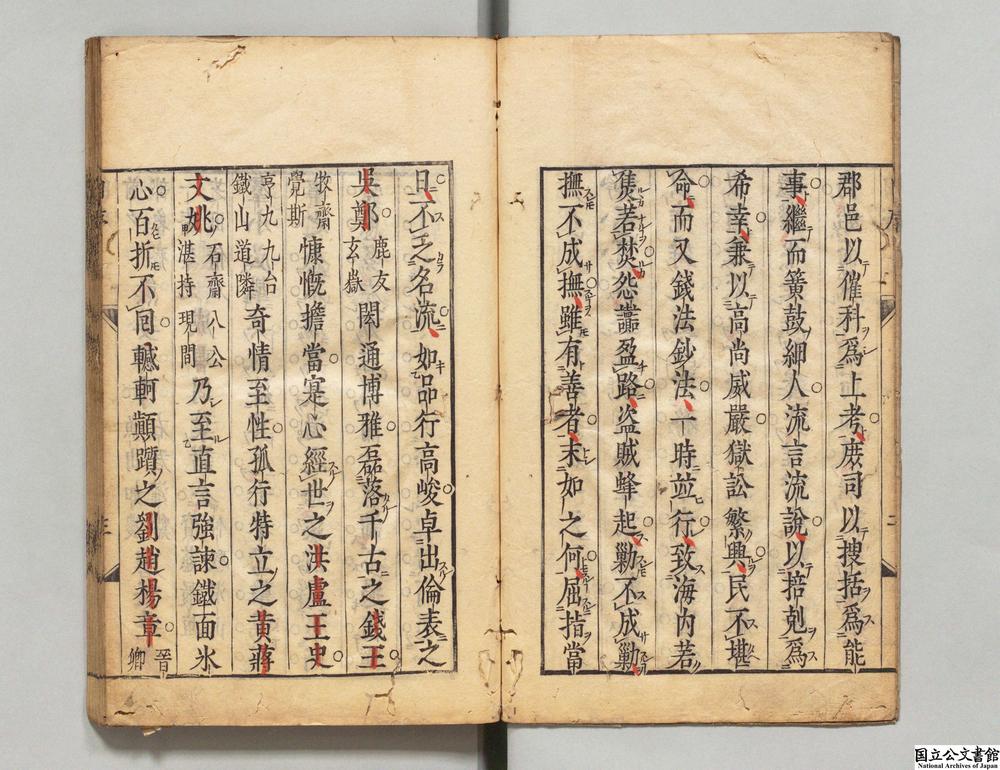 郡邑以催科爲上考庻司以搜括爲能
事繼而簧鼓細人流言流說以掊剋爲
希幸兼以高尚威嚴獄訟繁興民不堪
命而又錢法鈔法一時竝行致海内若
隽若焚怨讟盈路盗賊蜂起勦不成勦
撫不成撫雖有善者末如之何屈指當
旦不乏名流如品行高峻卓出倫表之
吳鄭鹿友玄嶽閎通博雅磊落千古之錢王
牧齋覺斯慷慨擔當寔心經世之洪盧王史
亨九九台鐵山道隣奇情至性孤行特立之黃蔣
文姚石齋八公湛持現間乃至直言強諫鐵面氷
心百折不囘轗軻顛躓之劉趙楊章晉卿
国立公文書館
National Archives of Japan